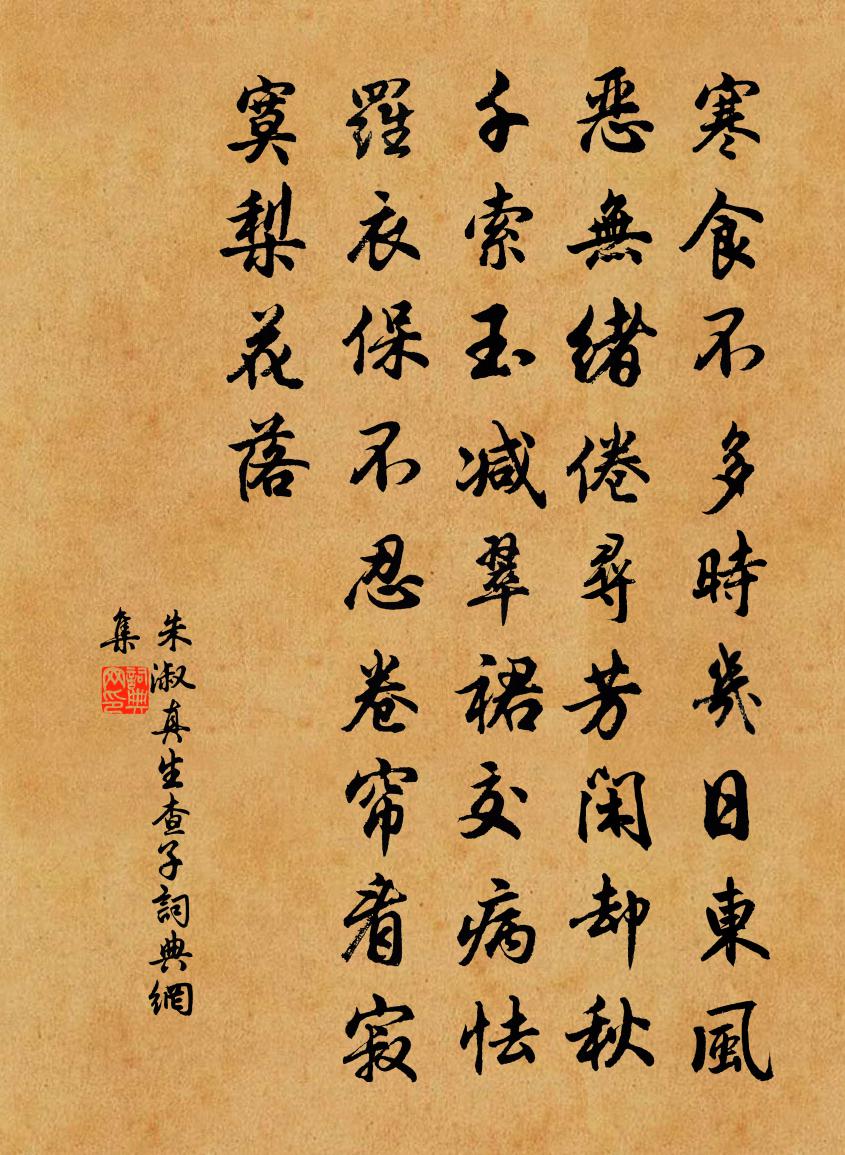 寒食不多時幾日東風
惡無緒倦尋芳閑却秋
千索玉减翠裙交病怯
羅衣保不忍卷帘看寂
寞梨花落
朱淑真生查子詞典網
集
詞典
网印